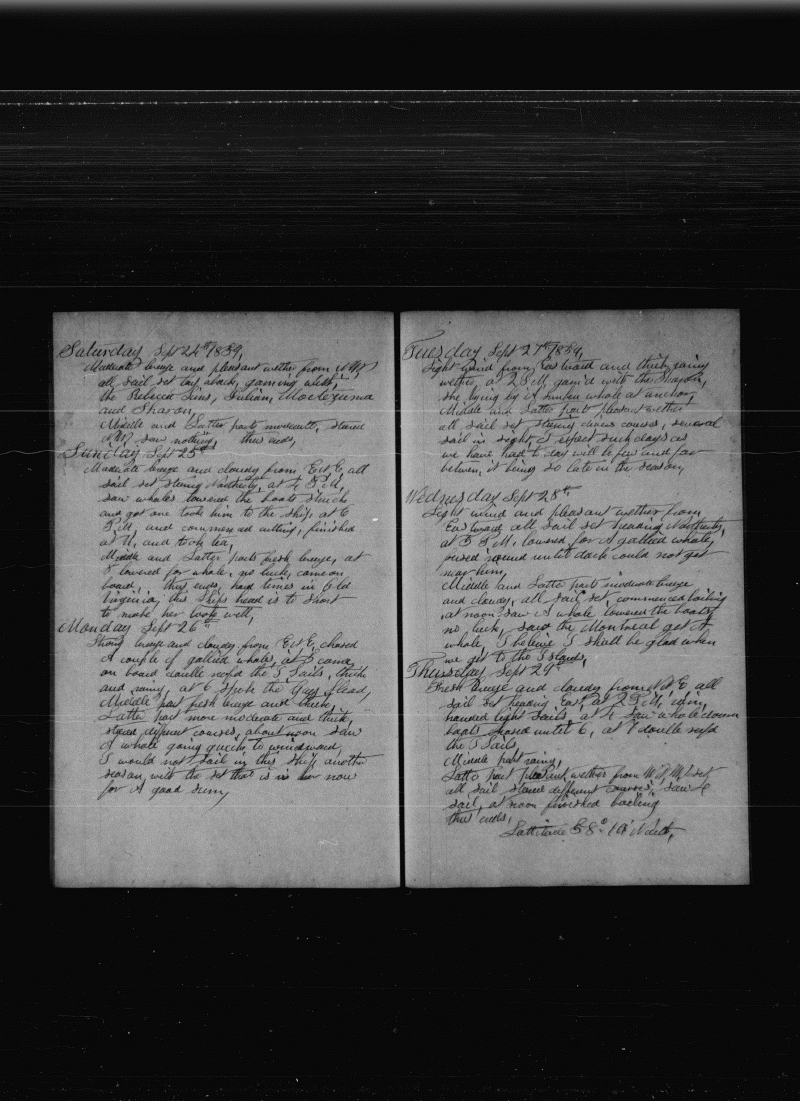 Saturday Sept 24th 1859,
Moderate breeze and pleasant wether from NW
all sail set lay aback, gaming with,
the Rebecca Sims, Julian, Moctezuma
and Sharon,
Middle and Latter parts moderate, steared
NW, saw nothing, thus ends,
Sunday Sept 25th
Moderate breeze and cloudy from E&E, all
sail set stering Northerly, at 4 P.M,
saw whales lowered the boats struck
and got one took him to the ship, at 6
P.M, and commenced cutting, finished
at 11, and took tea,
Middle and Latter parts fresh breeze, at
8 lowered for whale, no luck, came on
board, thus ends, hard times in Old
Virginia, this ships head is to short
to make her work well,
Monday Sept 26th
Strong breeze and cloudy from E&E, chased
A couple of gallied whales, at 5 came
on board double reefd the T Sails, thick
and rainy, at 6 spoke the Gay Head,
Middle part fresh breeze and thick,
Latter part more moderate and thick,
steared different courses, about noon saw
A whale going quick to windward,
I would not sail in this ship another
season, with the set that is in her now
for A good sum,
Tuesday Sept 27th 1859,
Light wind from Eastward and thick rainy
wether, at 2 P.M, gam'd with the Sharon,
she lying by A sunken whale at anchor,
Middle and Latter parts pleasant wether
all sail set stering divers courses, several
sail in sight, I expect such days as
we have had to day will be few and far
between, it being so late in the season,
Wednesday Sept 28th
Light wind and pleasant wether from
Eastward all sail set heading Northerly,
at 3 P.M, lowered for A gallied whale,
until dark could not get
near him,
Middle and Latter parts moderate breeze
and cloudy, all sail set, commenced boiling
at noon saw A whale lowered the boats,
no luck, saw the Montreal get A
whale, I believe I shall be glad when
we get to the Islands,
Thursday Sept 29th
Fresh breeze and cloudy from N.E, all
sail set heading East, at 2 P.M, rain,
handed light sails, at 4 saw whale down
boats chased until 6, at 7 double reefd
the T Sails,
Middle part rainy,
Latter part pleasant wether from set
all sail steared different courses, saw 4
sail, at noon finished boiling
thus ends,
Lattitude 58° 10' North,